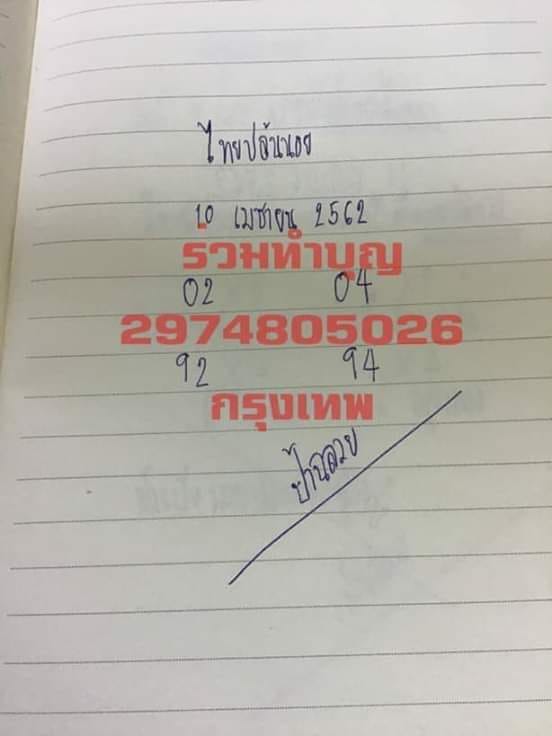 ไทยปล้นนอย
10 เมษายน 2562
รวมทำบุญ
02 04
2974805026
92 94
กรุงเทพ
ป้าฉลวย